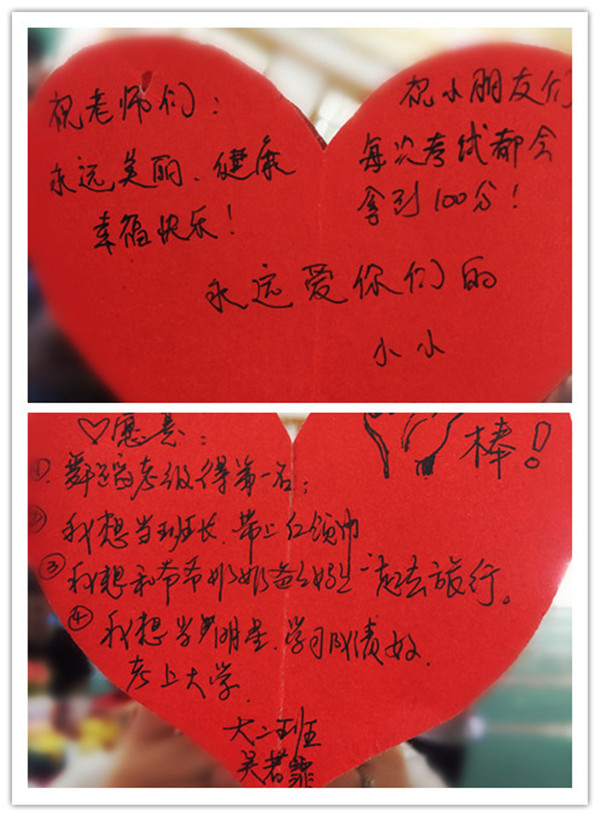 祝老师们：
永远美丽、健康
幸福快乐！
祝小朋友们
每次考试都会
拿到100分！
永远爱你们的
小小
♡愿景：
① 舞蹈考级得第一名；
② 我想当班长，带上红领巾
③ 我想和爷爷奶奶爸爸妈妈一起去旅行。
④ 我想当明星，学习成绩好，
考上大学
棒！
大二班
吴若霏